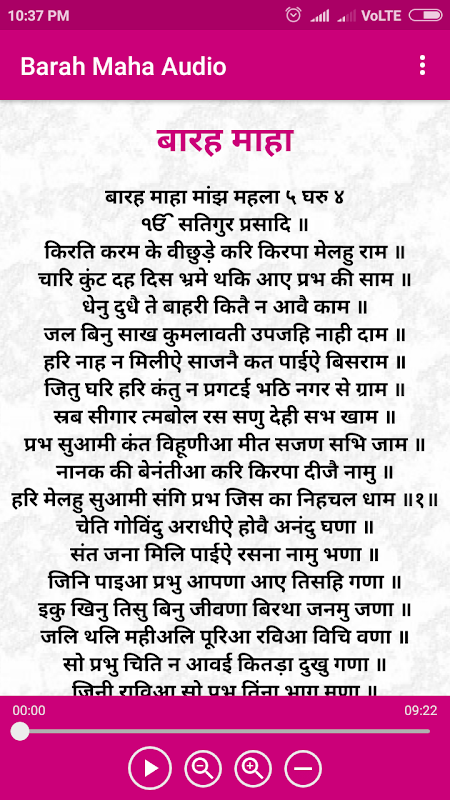 10:37 PM
VoLTE
Barah Maha Audio
बारह माहा
बारह माहा मांझ महला ५ घरु ४
ੴ सतिगुर प्रसादि ॥
किरति करम के वीछुड़े करि किरपा मेलहु राम ॥
चारि कुंट दह दिस भ्रमे थकि आए प्रभ की साम ॥
धेनु दुधै ते बाहरी कितै न आवै काम ॥
जल बिनु साख कुमलावती उपजहि नाही दाम ॥
हरि नाह न मिलीऐ साजनै कत पाईऐ बिसराम ॥
जितु घरि हरि कंतु न प्रगटई भठि नगर से ग्राम ॥
स्रब सीगार त्मबोल रस सणु देही सभ खाम ॥
प्रभ सुआमी कंत विहूणीआ मीत सजण सभि जाम ॥
नानक की बेनंतीआ करि किरपा दीजै नामु ॥
हरि मेलहु सुआमी संगि प्रभ जिस का निहचल धाम ॥१॥
चेति गोविंदु अराधीऐ होवै अनंदु घणा ॥
संत जना मिलि पाईऐ रसना नामु भणा ॥
जिनि पाइआ प्रभु आपणा आए तिसहि गणा ॥
इकु खिनु तिसु बिनु जीवणा बिरथा जनमु जणा ॥
जलि थलि महीअलि पूरिआ रविआ विचि वणा ॥
सो प्रभु चिति न आवई कितड़ा दुखु गणा ॥
जिनी राविआ सो प्रभू तिंना भागु मणा ॥
00:00
09:22